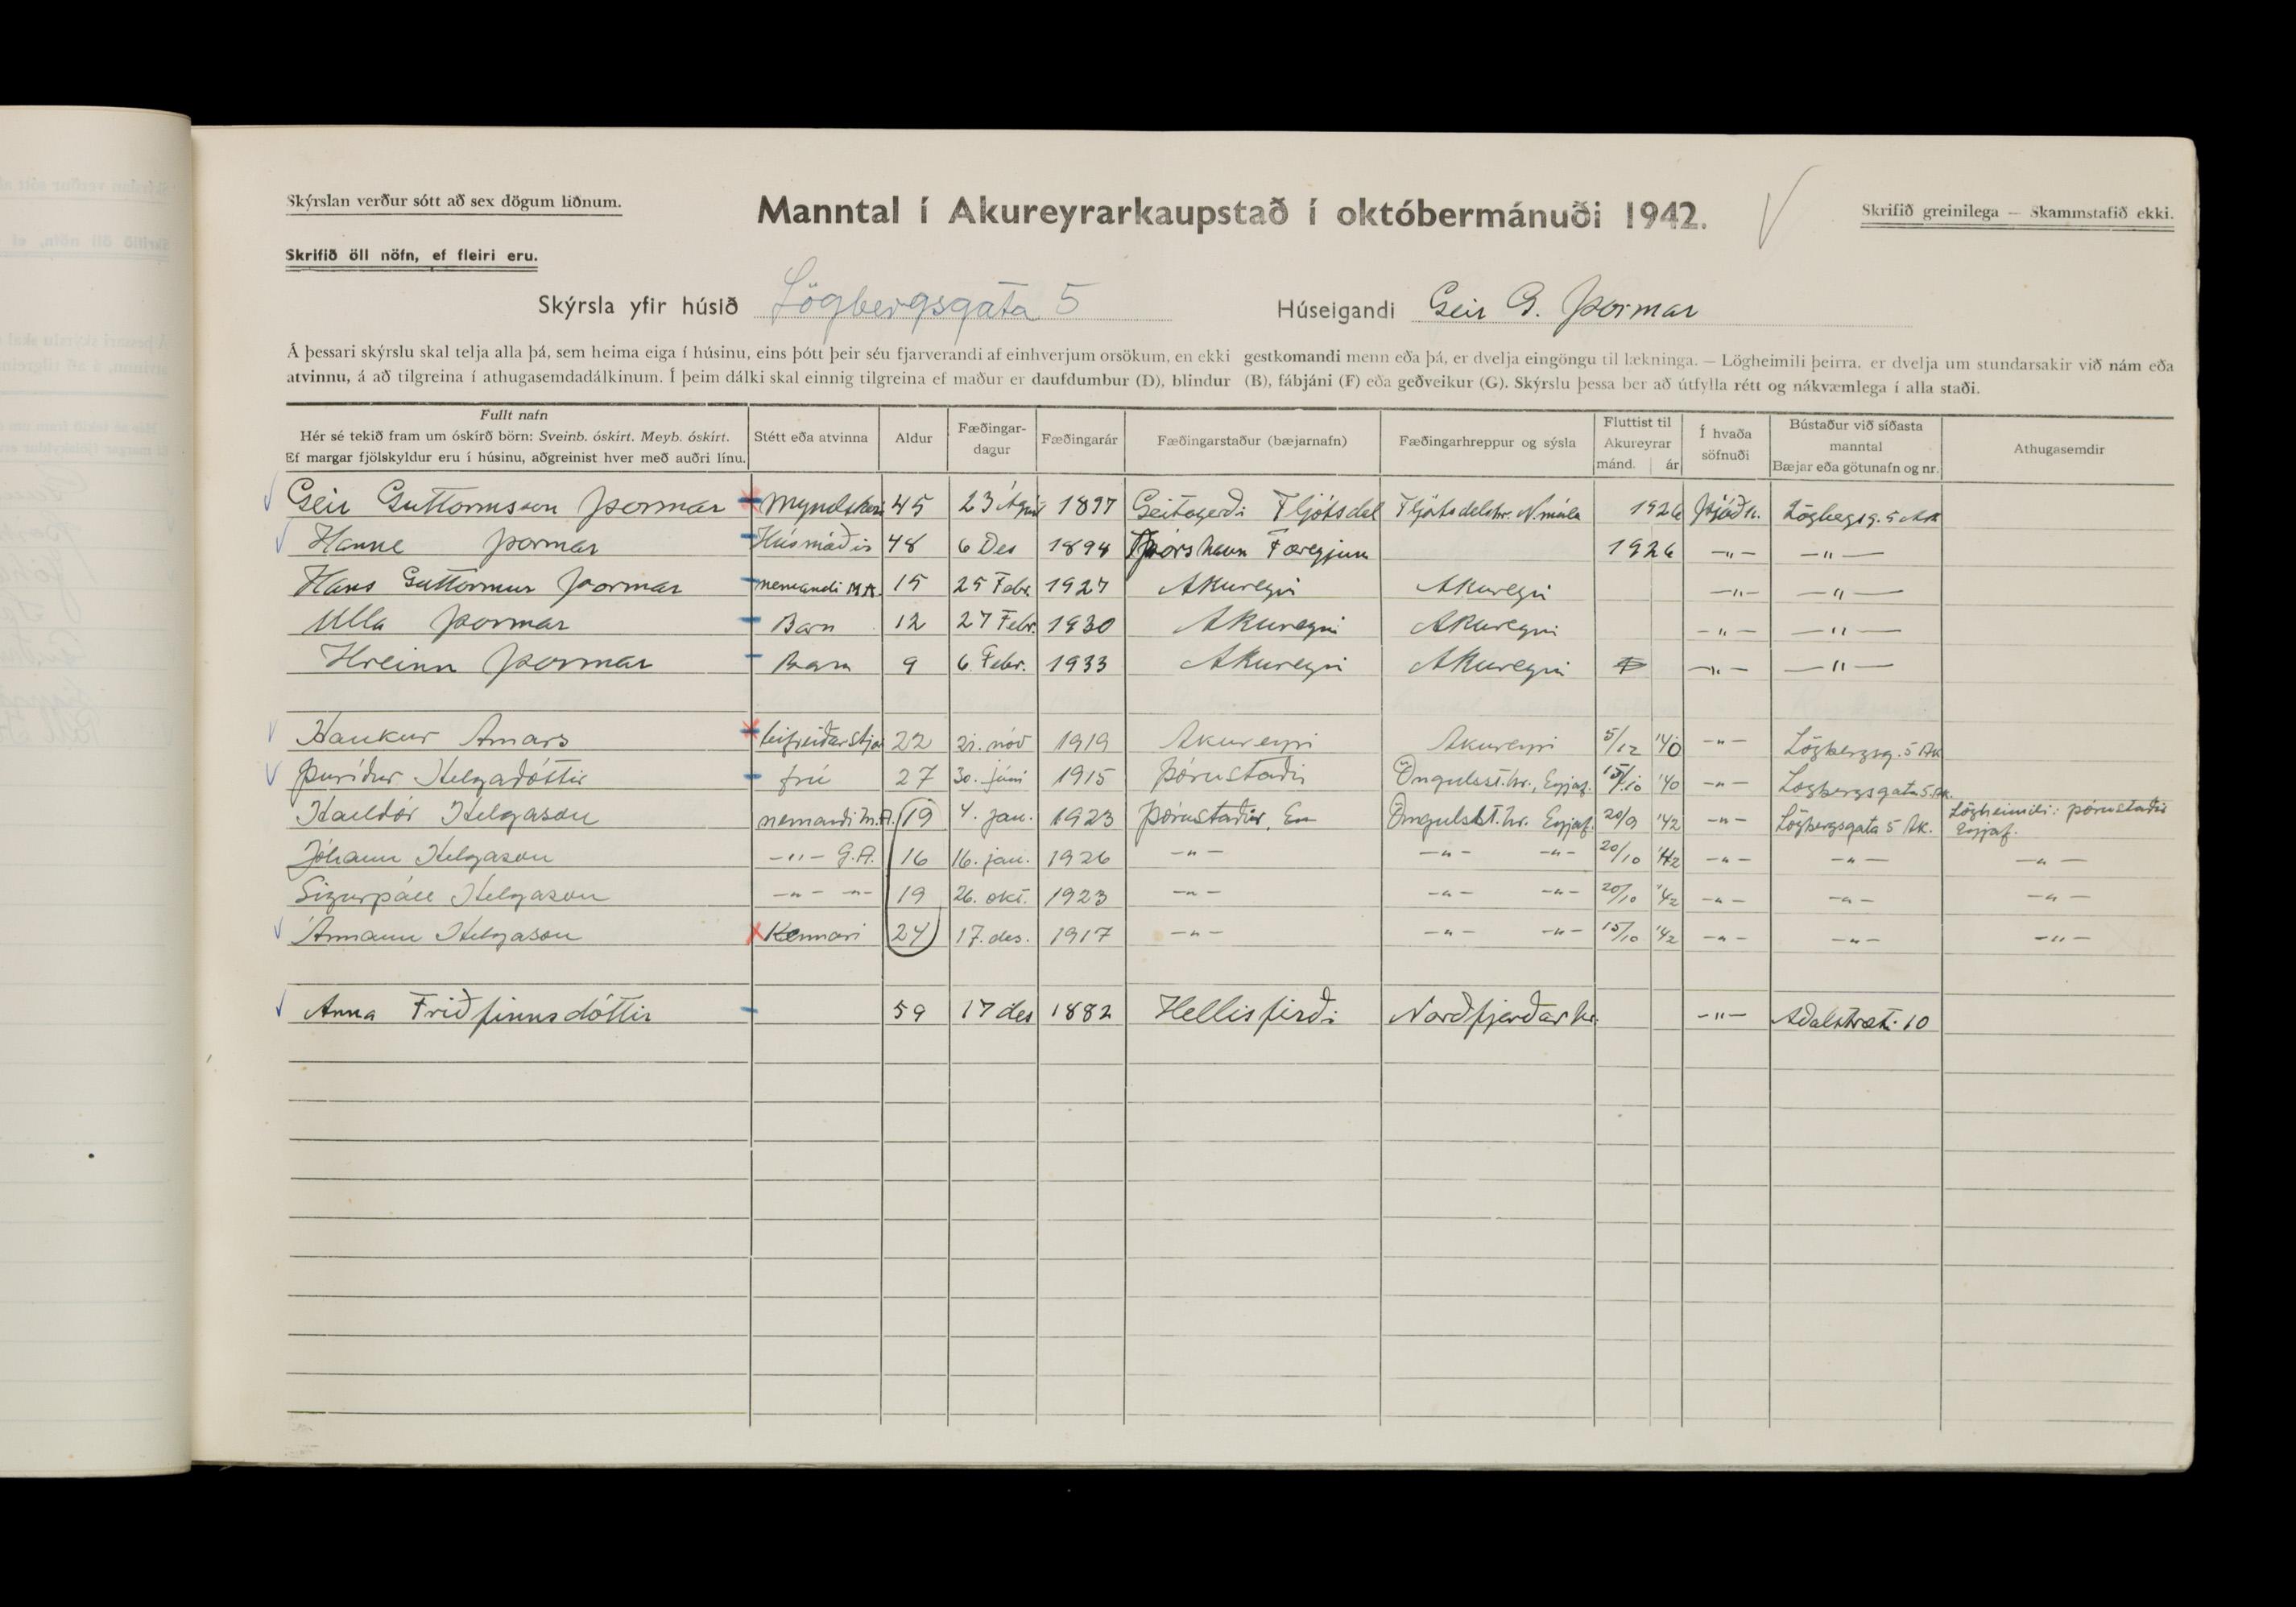 Skýrslan verður sótt að sex dögum liðnum.
Manntal í Akureyrarkaupstað í októbermánuði 1942.
Skrifið greinilega — Skammstafið ekki.
Skrifið öll nöfn, ef fleiri eru.
Skýrsla yfir húsið Lögbergsgata 5 Húseigandi Geir G. Þormar
Á þessari skýrslu skal telja alla þá, sem heima eiga í húsinu, eins þótt þeir séu fjarverandi af einhverjum orsökum, en ekki gestkomandi menn eða þá, er dvelja eingöngu til lækninga. — Lögheimili þeirra, er dvelja um stundarsakir við nám eða
atvinnu, á að tilgreina í athugasemdadálkinum. Í þeim dálki skal einnig tilgreina ef maður er daufdumbur (D), blindur (B), fábjáni (F) eða geðveikur (G). Skýrslu þessa ber að útfylla rétt og nákvæmlega í alla staði.
Fullt nafn
Hér sé tekið fram um óskírð börn: Sveinb. óskírt. Meyb. óskírt.
Ef margar fjölskyldur eru í húsinu, aðgreinist hver með auðri línu.
Stétt eða atvinna
Aldur
Fæðingar-
dagur
Fæðingarár
Fæðingarstaður (bæjarnafn)
Fæðingarhreppur og sýsla
Fluttist til
Akureyrar
mánd. ár
Í hvaða
söfnuði
Bústaður við síðasta
manntal
Bæjar eða götunafn og nr.
Athugasemdir
Geir Guttormsson Þormar Myndskeri 45 23 Ágúst 1897 Geitagerði Fljótsdal Fljótsdalshr. N.múla 1926 Þjóðk. Lögbegsg. 5 Ak
Hanne Þormar Húsmóðir 48 6 Des 1894 Þórshavn Færeyjum 1926 —"— —"—
Hans Guttormur Þormar nemandi M.A. 15 25 Febr. 1927 Akureyri Akureyri —"— —"—
Ulla Þormar Barn 12 27 Febr. 1930 Akureyri Akureyri —"— —"—
Hreinn Þormar Barn 9 6 Febr. 1933 Akureyri Akureyri —"— —"—
Haukur Arnars bifreiðarstjóri 22 21. nóv 1919 Akureyri Akureyri 5/12 '40 —"— Lögbergsg. 5 Ak
Þuríður Helgadóttir frú 27 30. júní 1915 Þórustaðir Öngulsst.hr., Eyjaf. 15/10 '40 —"— Lögbergsgata 5 Ak.
Halldór Helgason nemandi M.A. 19 4. jan. 1923 Þórustaðir, Öngulsst.hr. Eyjaf. 20/9 '42 —"— Lögbergsgata 5 Ak. Lögheimili: Þórustaðir Eyjaf.
Jóhann Helgason —"— G.A. 16 16. jan. 1926 —"— —"— —"— 20/10 '42 —"— —"— —"—
Sigurpáll Helgason —"— —"— 19 26. okt. 1923 —"— —"— —"— 20/10 '42 —"— —"— —"—
Ármann Helgason Kennari 24 17. des. 1917 —"— —"— —"— 15/10 '42 —"— —"— —"—
Anna Friðfinnsdóttir 59 17 des 1882 Hellisfirði Norðfjarðarhr. —"— Aðalstræti 10